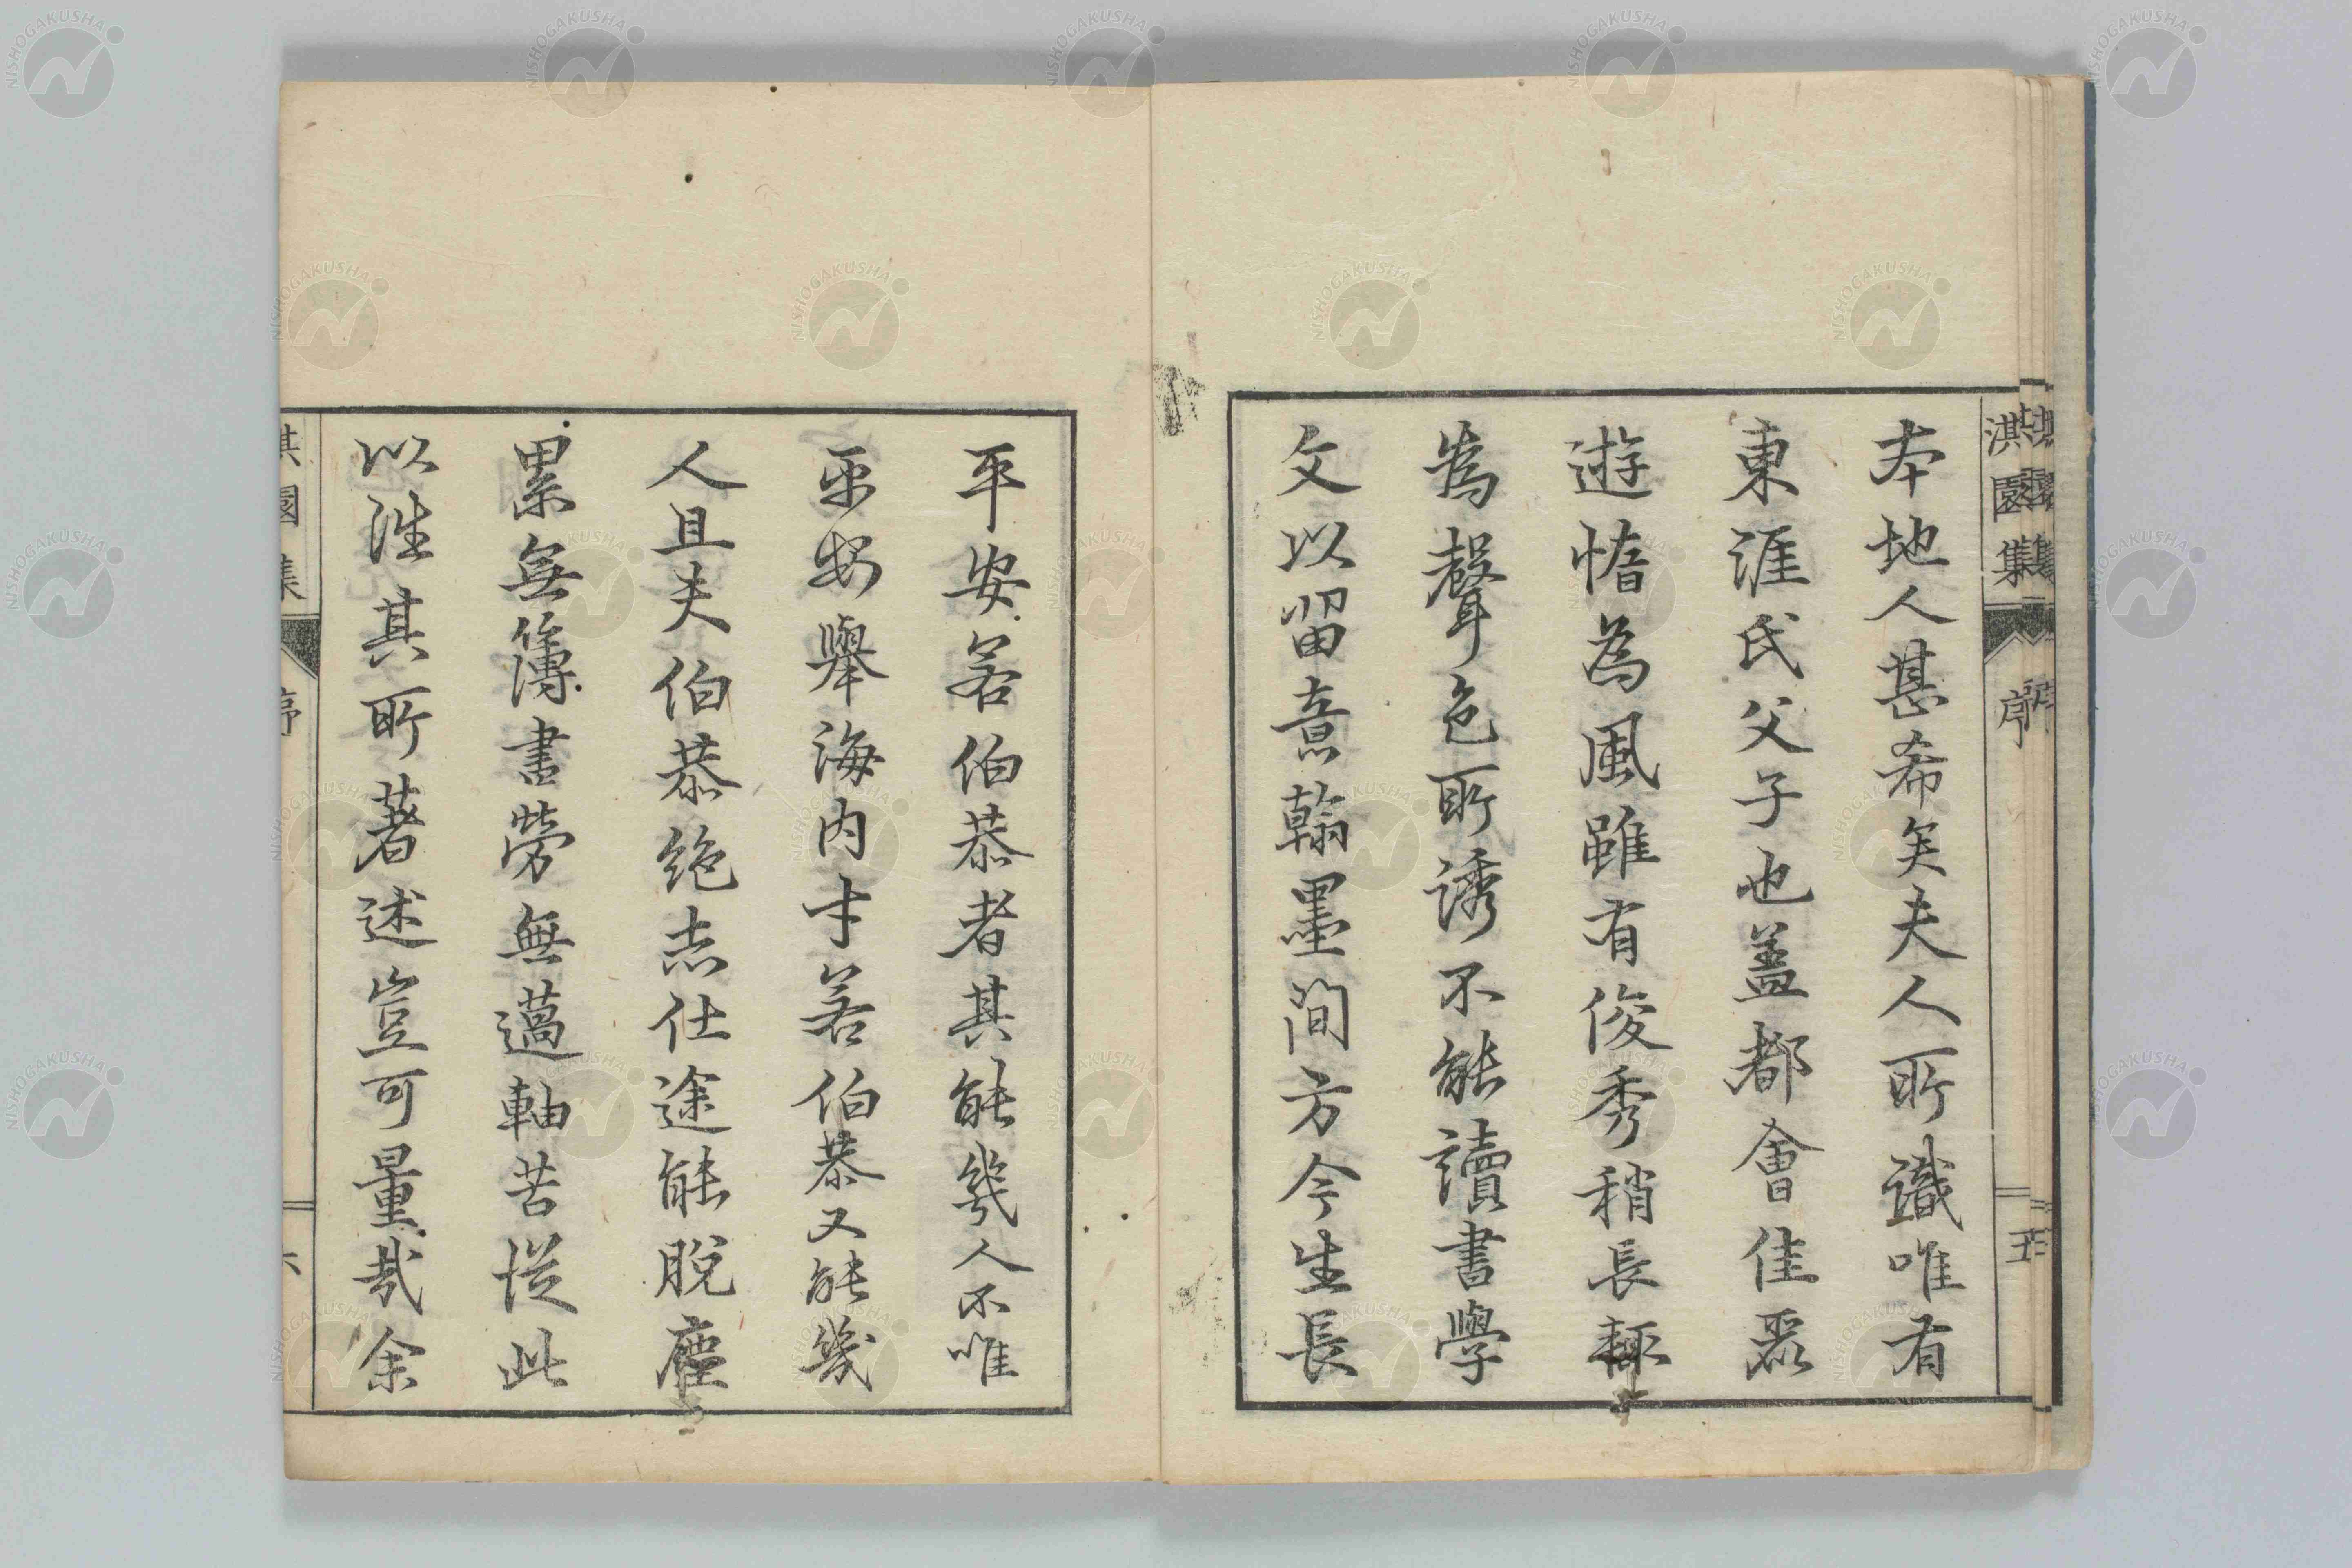 淇園集 序 五
本地人甚希矣夫人所識唯有
東涯氏父子也蓋都會佳麗
遊惰為風雖有俊秀稍長輒
為聲色所誘不能讀書學
文以留意翰墨間方今生長
平安若伯恭者其能幾人不唯
平安舉海內才若伯恭又能幾
人且夫伯恭絶志仕途能脫塵
累無簿書勞無薖軸苦從此
以往其所著述豈可量哉余
淇園集 序 六
NISHOGAKUSHA